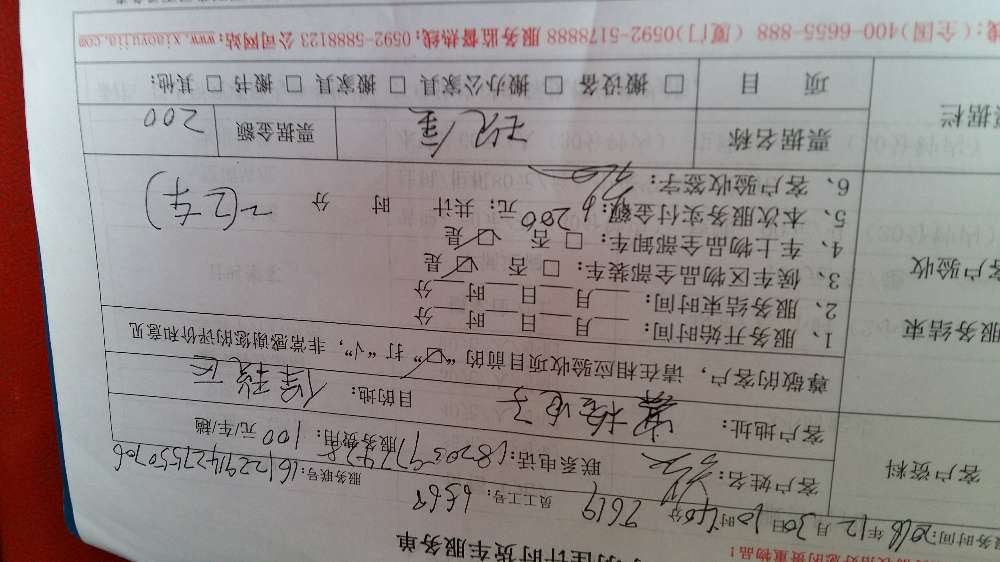 计时货车服务单
服务时间:2016年12月30日10时40分 7619 员工工号:6568 服务联号:161229142715550706
客户资料
客户姓名: 联系电话:18203977978 服务费用:100元/车/趟
客户地址: 目的地:保税区
尊敬的客户，请在相应验收项目前的“□”打“√”，非常感谢您的评价和意见
服务结束
客户验收
1、服务开始时间:___月___日___时___分
2、服务结束时间:___月___日___时___分
3、候车区物品全部装车: □否 ☑是
4、车上物品全部卸车: □否 ☑是
5、本次服务实付金额:200元; 共计 时 分 (2车)
6、客户验收签字:
据栏
票据名称 现金 票据金额 200
项目 □搬设备 □搬办公家具 □搬家具 □搬书 □其他:
线:(全国)400-6655-888 (厦门)0592-5178888 服务监督热线:0592-5888123 公司网站:www.xiaoyujia.com